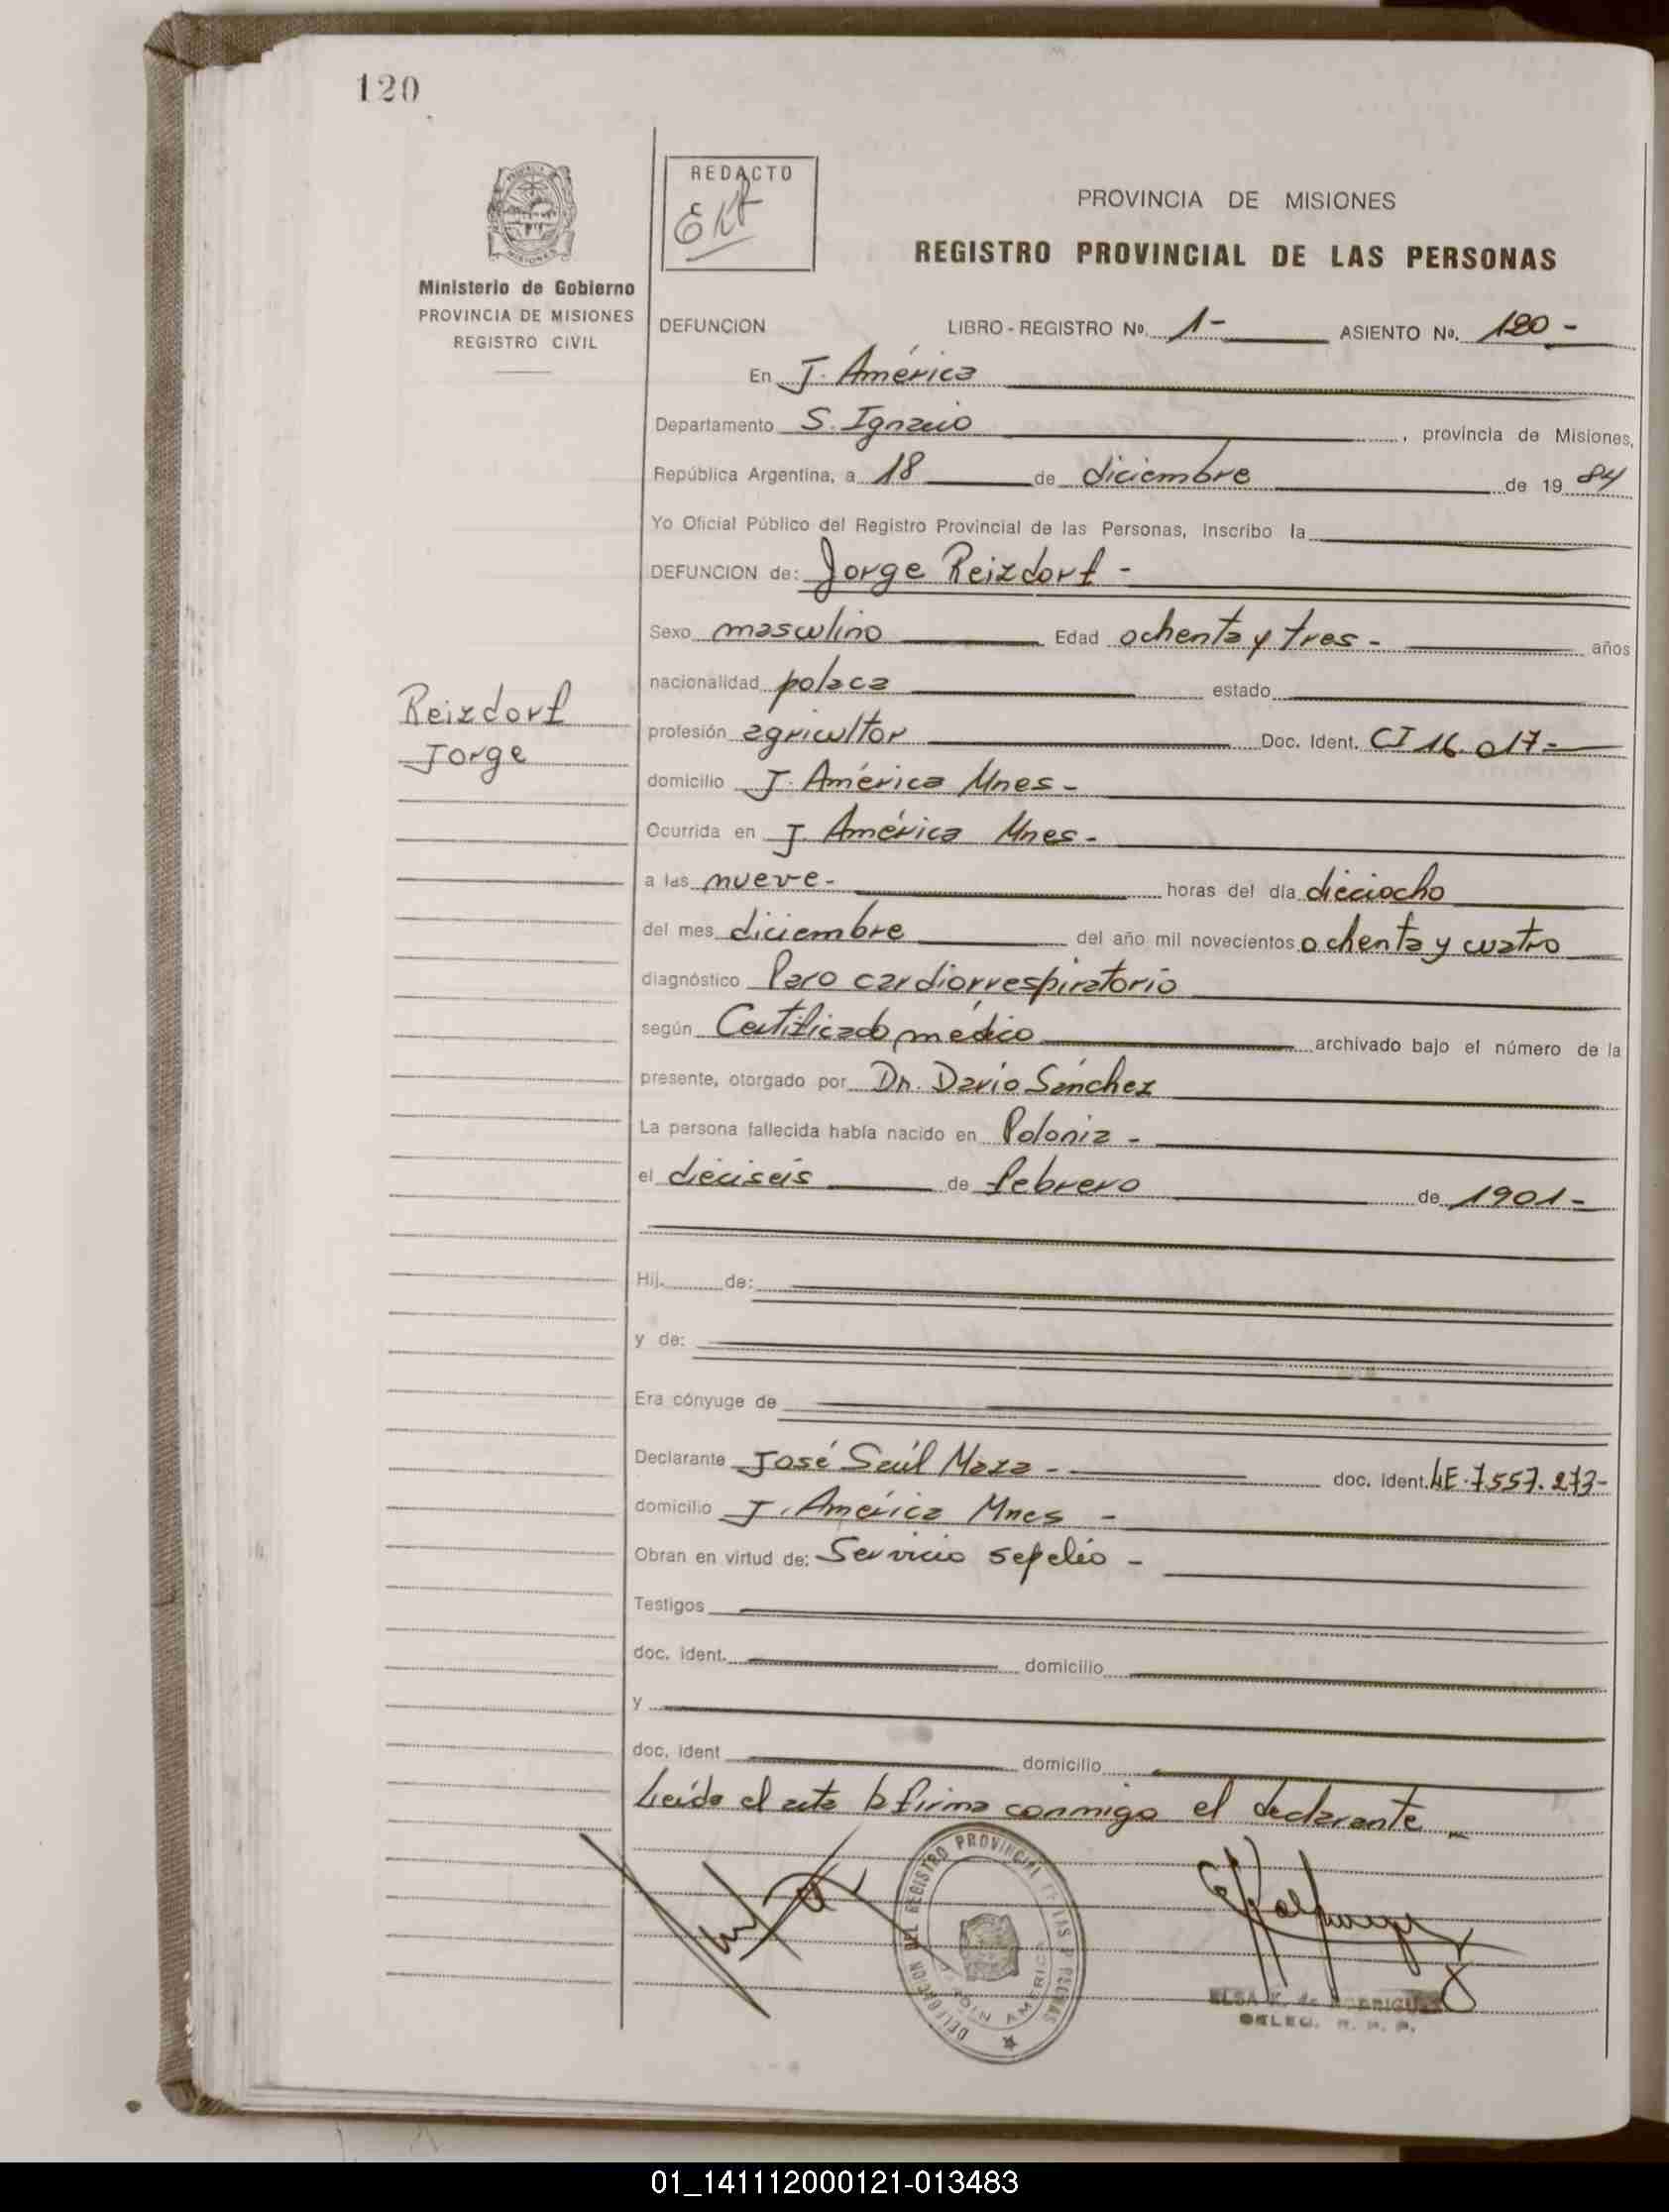 120
REDACTO
PROVINCIA DE MISIONES
REGISTRO PROVINCIAL DE LAS PERSONAS
Ministerio de Gobierno
PROVINCIA DE MISIONES
REGISTRO CIVIL
DEFUNCION LIBRO - REGISTRO Nº. 1- ASIENTO Nº. 120 -
En J. América
Departamento S. Ignacio , provincia de Misiones,
República Argentina, a 18 de diciembre de 19 84
Yo Oficial Público del Registro Provincial de las Personas, inscribo la
DEFUNCION de: Jorge Reizdorf -
Sexo masculino Edad ochenta y tres - años
nacionalidad polaca estado
Reizdorf
Jorge
profesión agricultor Doc. Ident. CI 16.017-
domicilio J. América Mnes -
Ocurrida en J. América Mnes -
a las nueve - horas del día dieciocho
del mes diciembre del año mil novecientos ochenta y cuatro
diagnóstico Paro cardiorrespiratorio
según Certificado médico archivado bajo el número de la
presente, otorgado por Dr. Dario Sánchez
La persona fallecida había nacido en Polonia -
el dieciseis de febrero de 1901-
Hij de:
y de:
Era cónyuge de
Declarante José Saúl Maza - doc. ident. LE.7557.273-
domicilio J. América Mnes -
Obran en virtud de: Servicio sepelio -
Testigos
doc. ident. domicilio
y
doc. ident domicilio
Leída el acta la firma conmigo el declarante -
DELEGACION DEL REGISTRO PROVINCIAL DE LAS PERSONAS
JARDIN AMERICA
ELSA K. de RODRIGUEZ
DELEG. R. P. P.
01_141112000121-013483